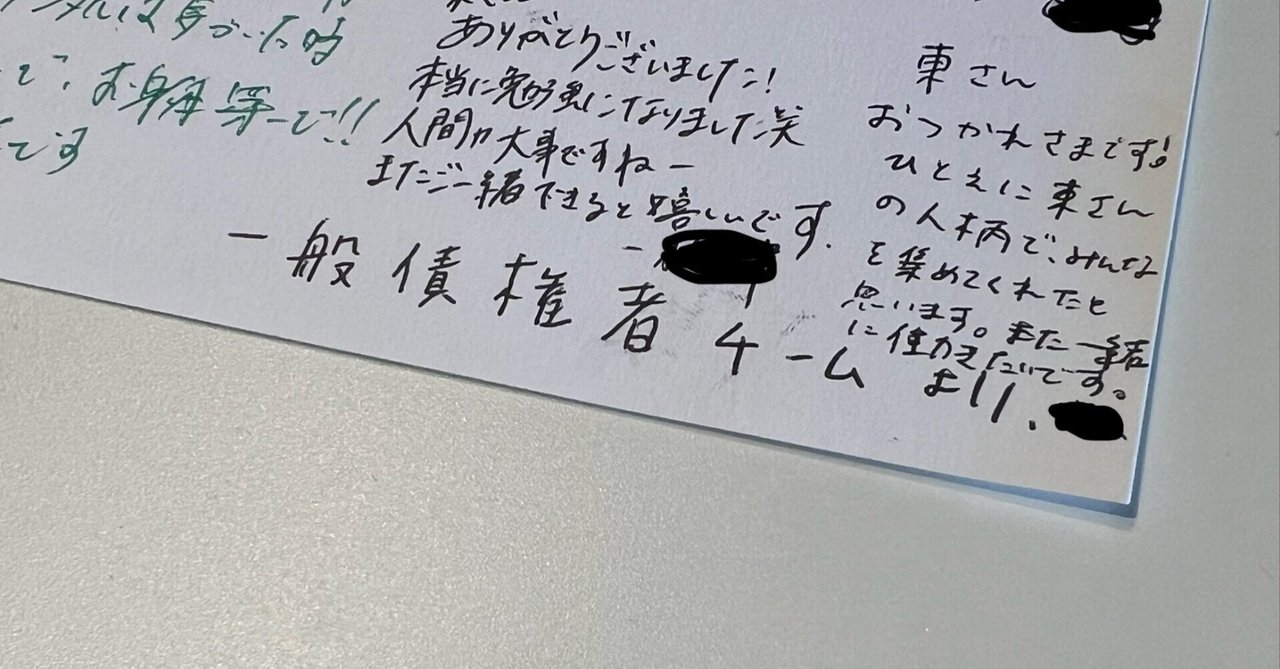 で、お身体第一で!!
です
ありがとうございました!
本当に勉強になりました笑
人間力大事ですねー
またご一緒できると嬉しいです.
東さん
おつかれさまです!
ひとえに東さん
の人柄で、みんな
を集めてくれたと
思います。また一緒
に仕事したいです。
一般債権者チームより.